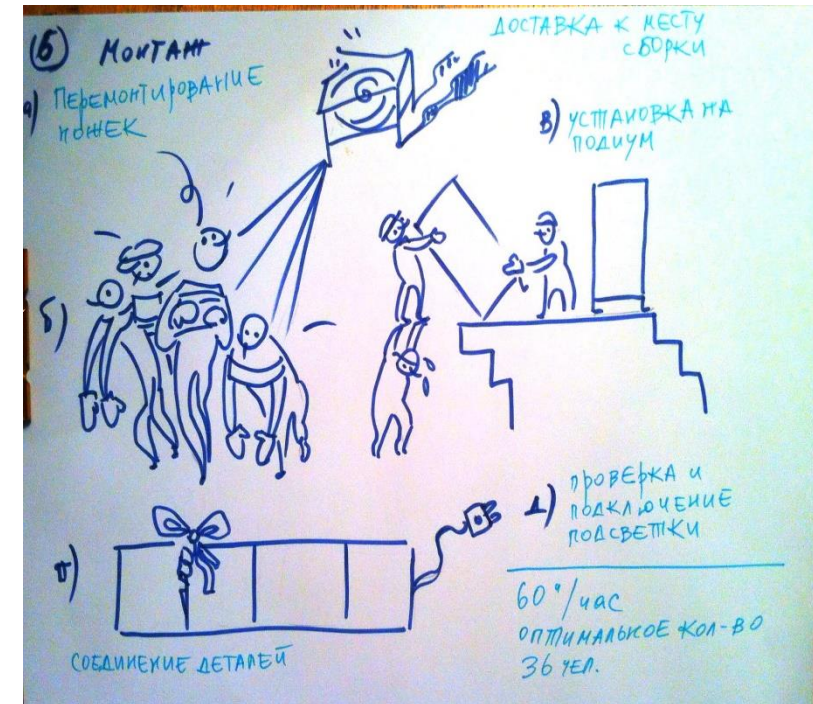 (Б) МОНТАЖ
ДОСТАВКА К МЕСТУ
СБОРКИ
а) ПЕРЕМОНТИРОВАНИЕ
НОЖЕК
В) УСТАНОВКА НА
ПОДИУМ
б)
г)
СОЕДИНЕНИЕ ДЕТАЛЕЙ
Д) ПРОВЕРКА И
ПОДКЛЮЧЕНИЕ
ПОДСВЕТКИ
60°/час
ОПТИМАЛЬНОЕ КОЛ-ВО
36 ЧЕЛ.